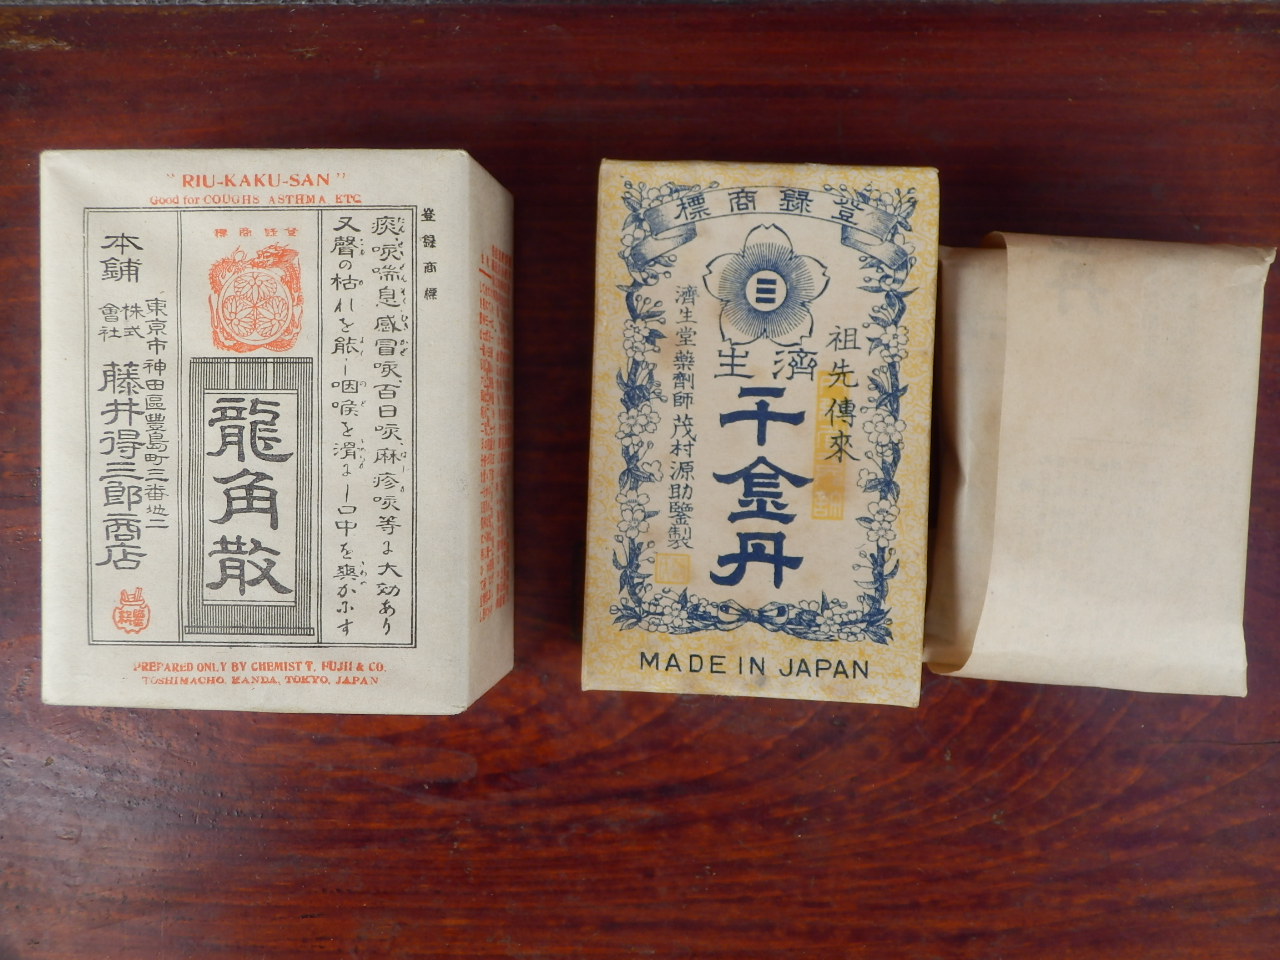 "RIU-KAKU-SAN"
Good for COUGHS ASTHMA ETC
登録商標
痰、咳喘息感冒咳、百日咳、麻疹咳等に大効あり
又聲の枯れを能し咽喉を滑にし口中を爽かにす
標商錄登
龍角散
東京市神田區豐島町三番地二
本舖
株式會社
藤井得三郎商店
PREPARED ONLY BY CHEMIST T. FUJII & CO.
TOSHIMACHO, KANDA, TOKYO, JAPAN
標商錄登
祖先傳來
生濟
千金丹
濟生堂藥劑師茂村源助鑒製
MADE IN JAPAN